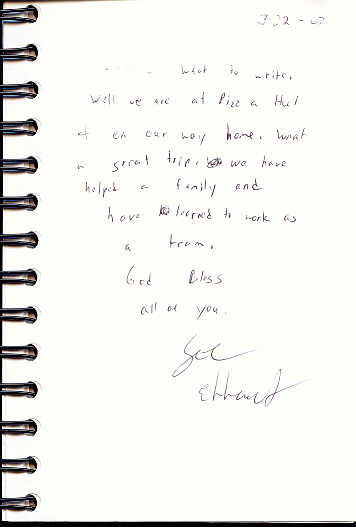 3-22-02
..... What to write.
Well we are at Pizza Hut
on our way home. What
a great trip. we have
helped a family and
have learned to work as
a team.
God Bless
all of you.